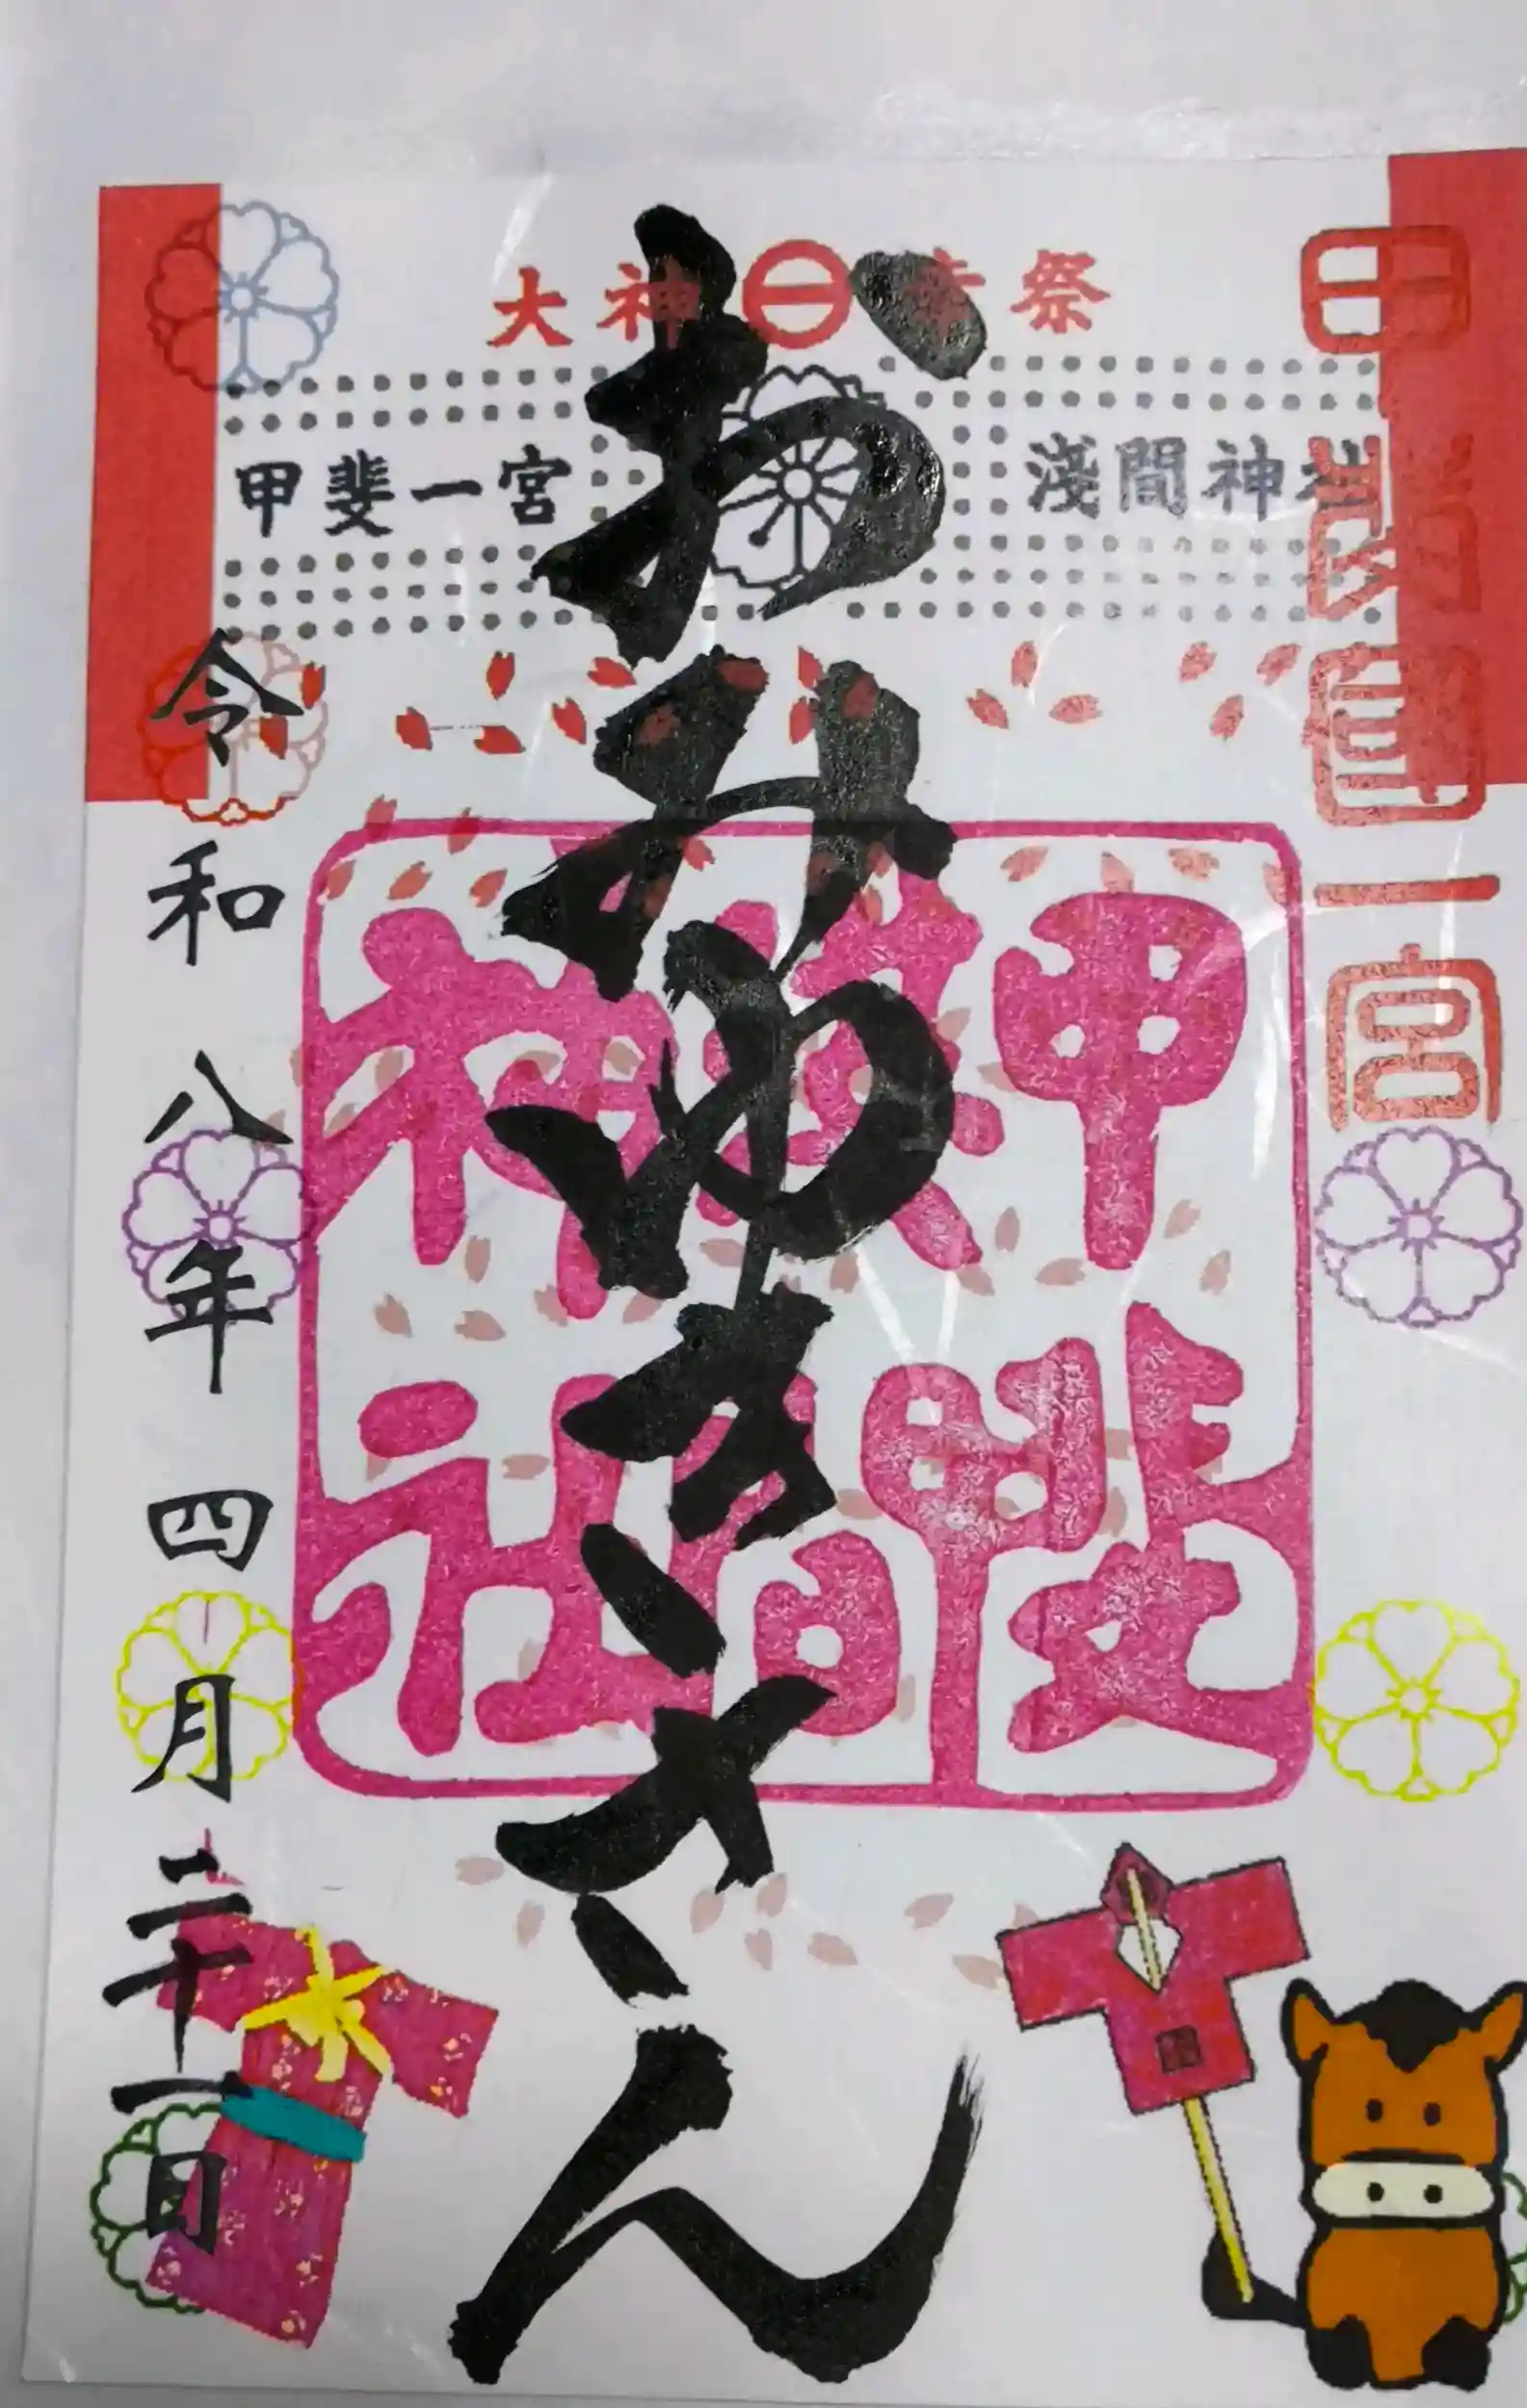 大神㊀幸祭
甲斐一宮 淺間神社
甲斐國一宮
おみゆきさん
甲斐
淺間
神社
令和八年四月二十一日